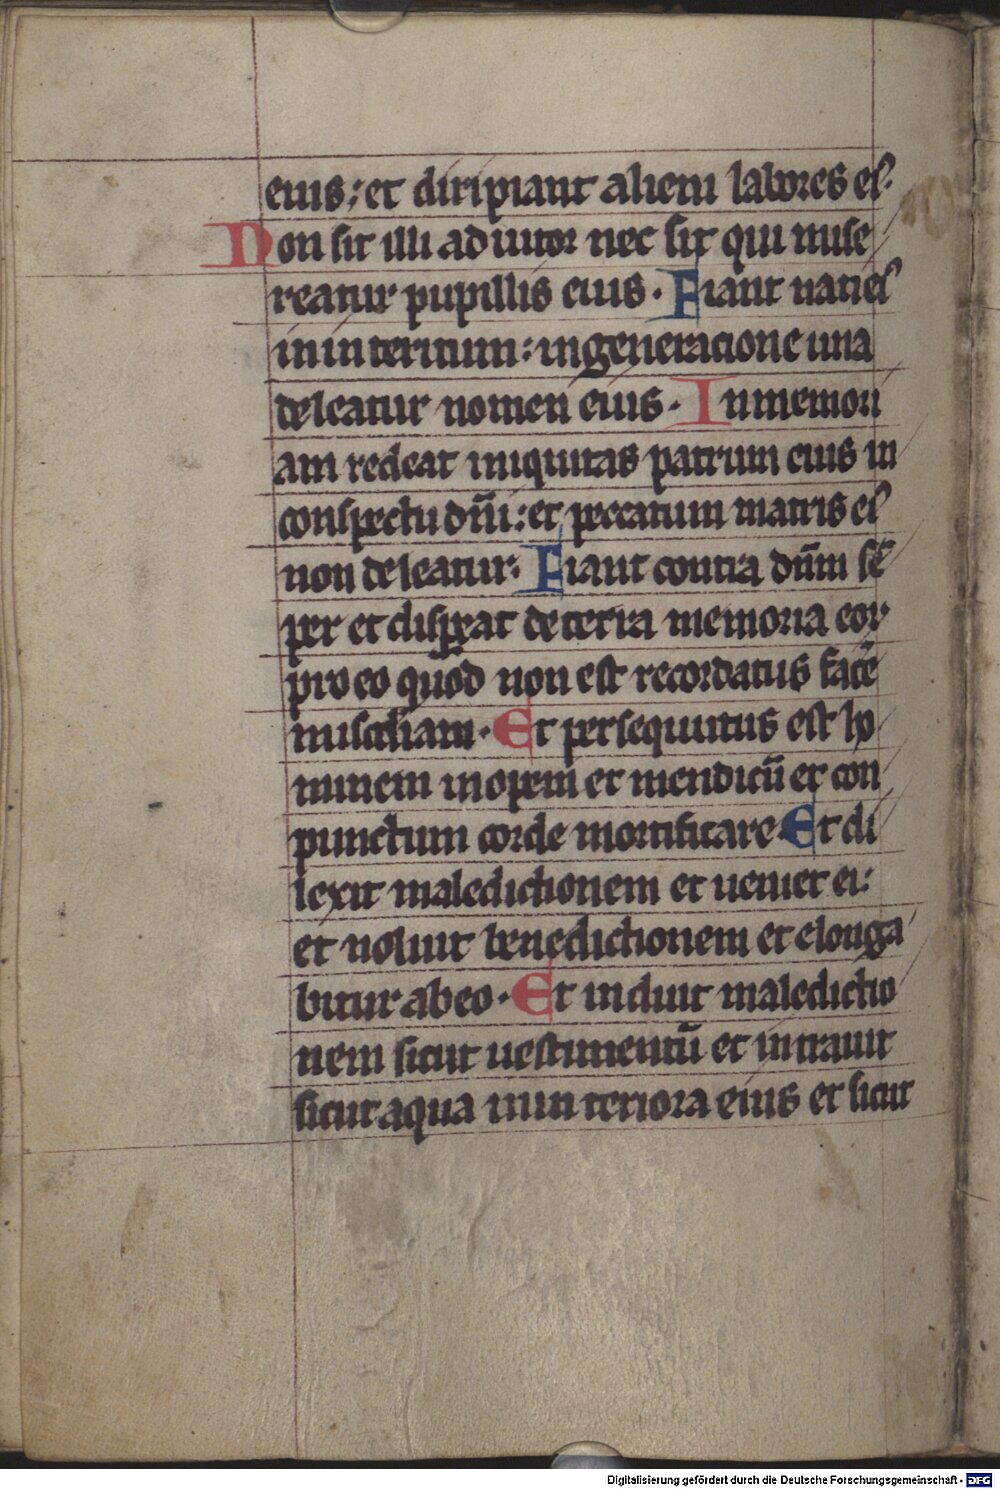 eius: et diripiant alieni labores ei9.
Non sit illi adiutor nec sit qui mise
reatur pupillis eius. Fiant nati ei9
in interitum: in generacione una
deleatur nomen eius. In memori
am redeat iniquitas patrum eius in
conspectu dñi: et peccatum matris ei9
non deleatur. Fiant contra dñm sē
per et dispereat de terra memoria eoꝝ
pro eo quod non est recordatus facē
misc̄diam. Et persequutus est ho
minem inopem et mendicū et con
punctum corde mortificare Et di
lexit maledictionem et ueniet ei:
et noluit benedictionem et elonga
bitur ab eo. Et induit maledictio
nem sicut uestimentū et intrauit
sicut aqua in interiora eius et sicut
Digitalisierung gefördert durch die Deutsche Forschungsgemeinschaft - DFG